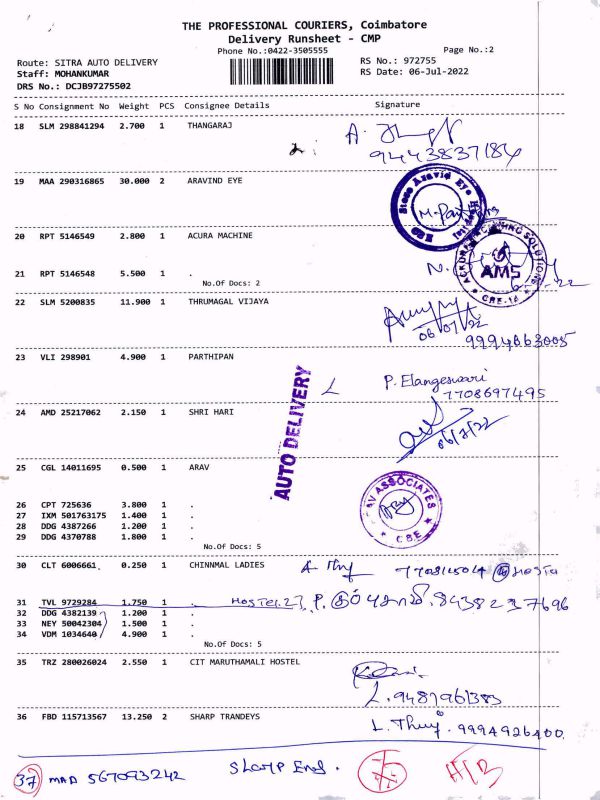 THE PROFESSIONAL COURIERS, Coimbatore
Delivery Runsheet - CMP
Phone No.:0422-3505555
Page No.:2
Route: SITRA AUTO DELIVERY
RS No.: 972755
Staff: MOHANKUMAR
RS Date: 06-Jul-2022
DRS No.: DCJB97275502
S No Consignment No Weight PCS Consignee Details Signature
18 SLM 298841294 2.700 1 THANGARAJ
9443837184
19 MAA 290316865 30.000 2 ARAVIND EYE
20 RPT 5146549 2.800 1 ACURA MACHINE
AMS
CBE-14
21 RPT 5146548 5.500 1 .
No.Of Docs: 2
22 SLM 5200835 11.900 1 THRUMAGAL VIJAYA
06/07/22
9994663005
23 VLI 298901 4.900 1 PARTHIPAN
P. Elangeswari
7708697495
AUTO DELIVERY
24 AMD 25217062 2.150 1 SHRI HARI
06/7/22
25 CGL 14011695 0.500 1 ARAV
ASSOCIATES
CBE
26 CPT 725636 3.800 1 .
27 IXM 501763175 1.400 1 .
28 DDG 4387266 1.200 1 .
29 DDG 4370788 1.800 1 .
No.Of Docs: 5
30 CLT 6006661. 0.250 1 CHINNMAL LADIES
31 TVL 9729284 1.750 1 . Hostel.27, P. 8438237696
32 DDG 4382139 1.200 1 .
33 NEY 50042304 1.500 1 .
34 VDM 1034640 4.900 1 .
No.Of Docs: 5
35 TRZ 280026024 2.550 1 CIT MARUTHAMALI HOSTEL
L. 9487961383
36 FBD 115713567 13.250 2 SHARP TRANDEYS
L. Thuy. 9994926400.
37 MAA 567093242 Sharp End. 75 HTB